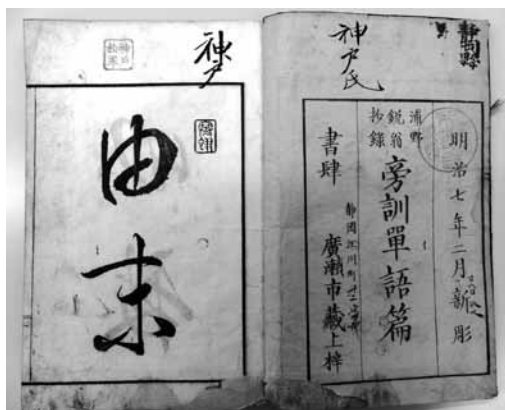 靜岡縣
神戸氏
明治七年二月新彫
浦野
鋭翁
抄錄
旁訓單語篇
靜岡江川町
書肆 廣瀬市藏上梓
神戸
由来